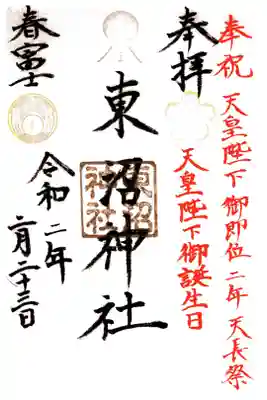 奉祝 天皇陛下御即位二年 天長祭
奉拝
天皇陛下御誕生日
東沼神社
東沼神社
春富士
令和二年
二月二十三日